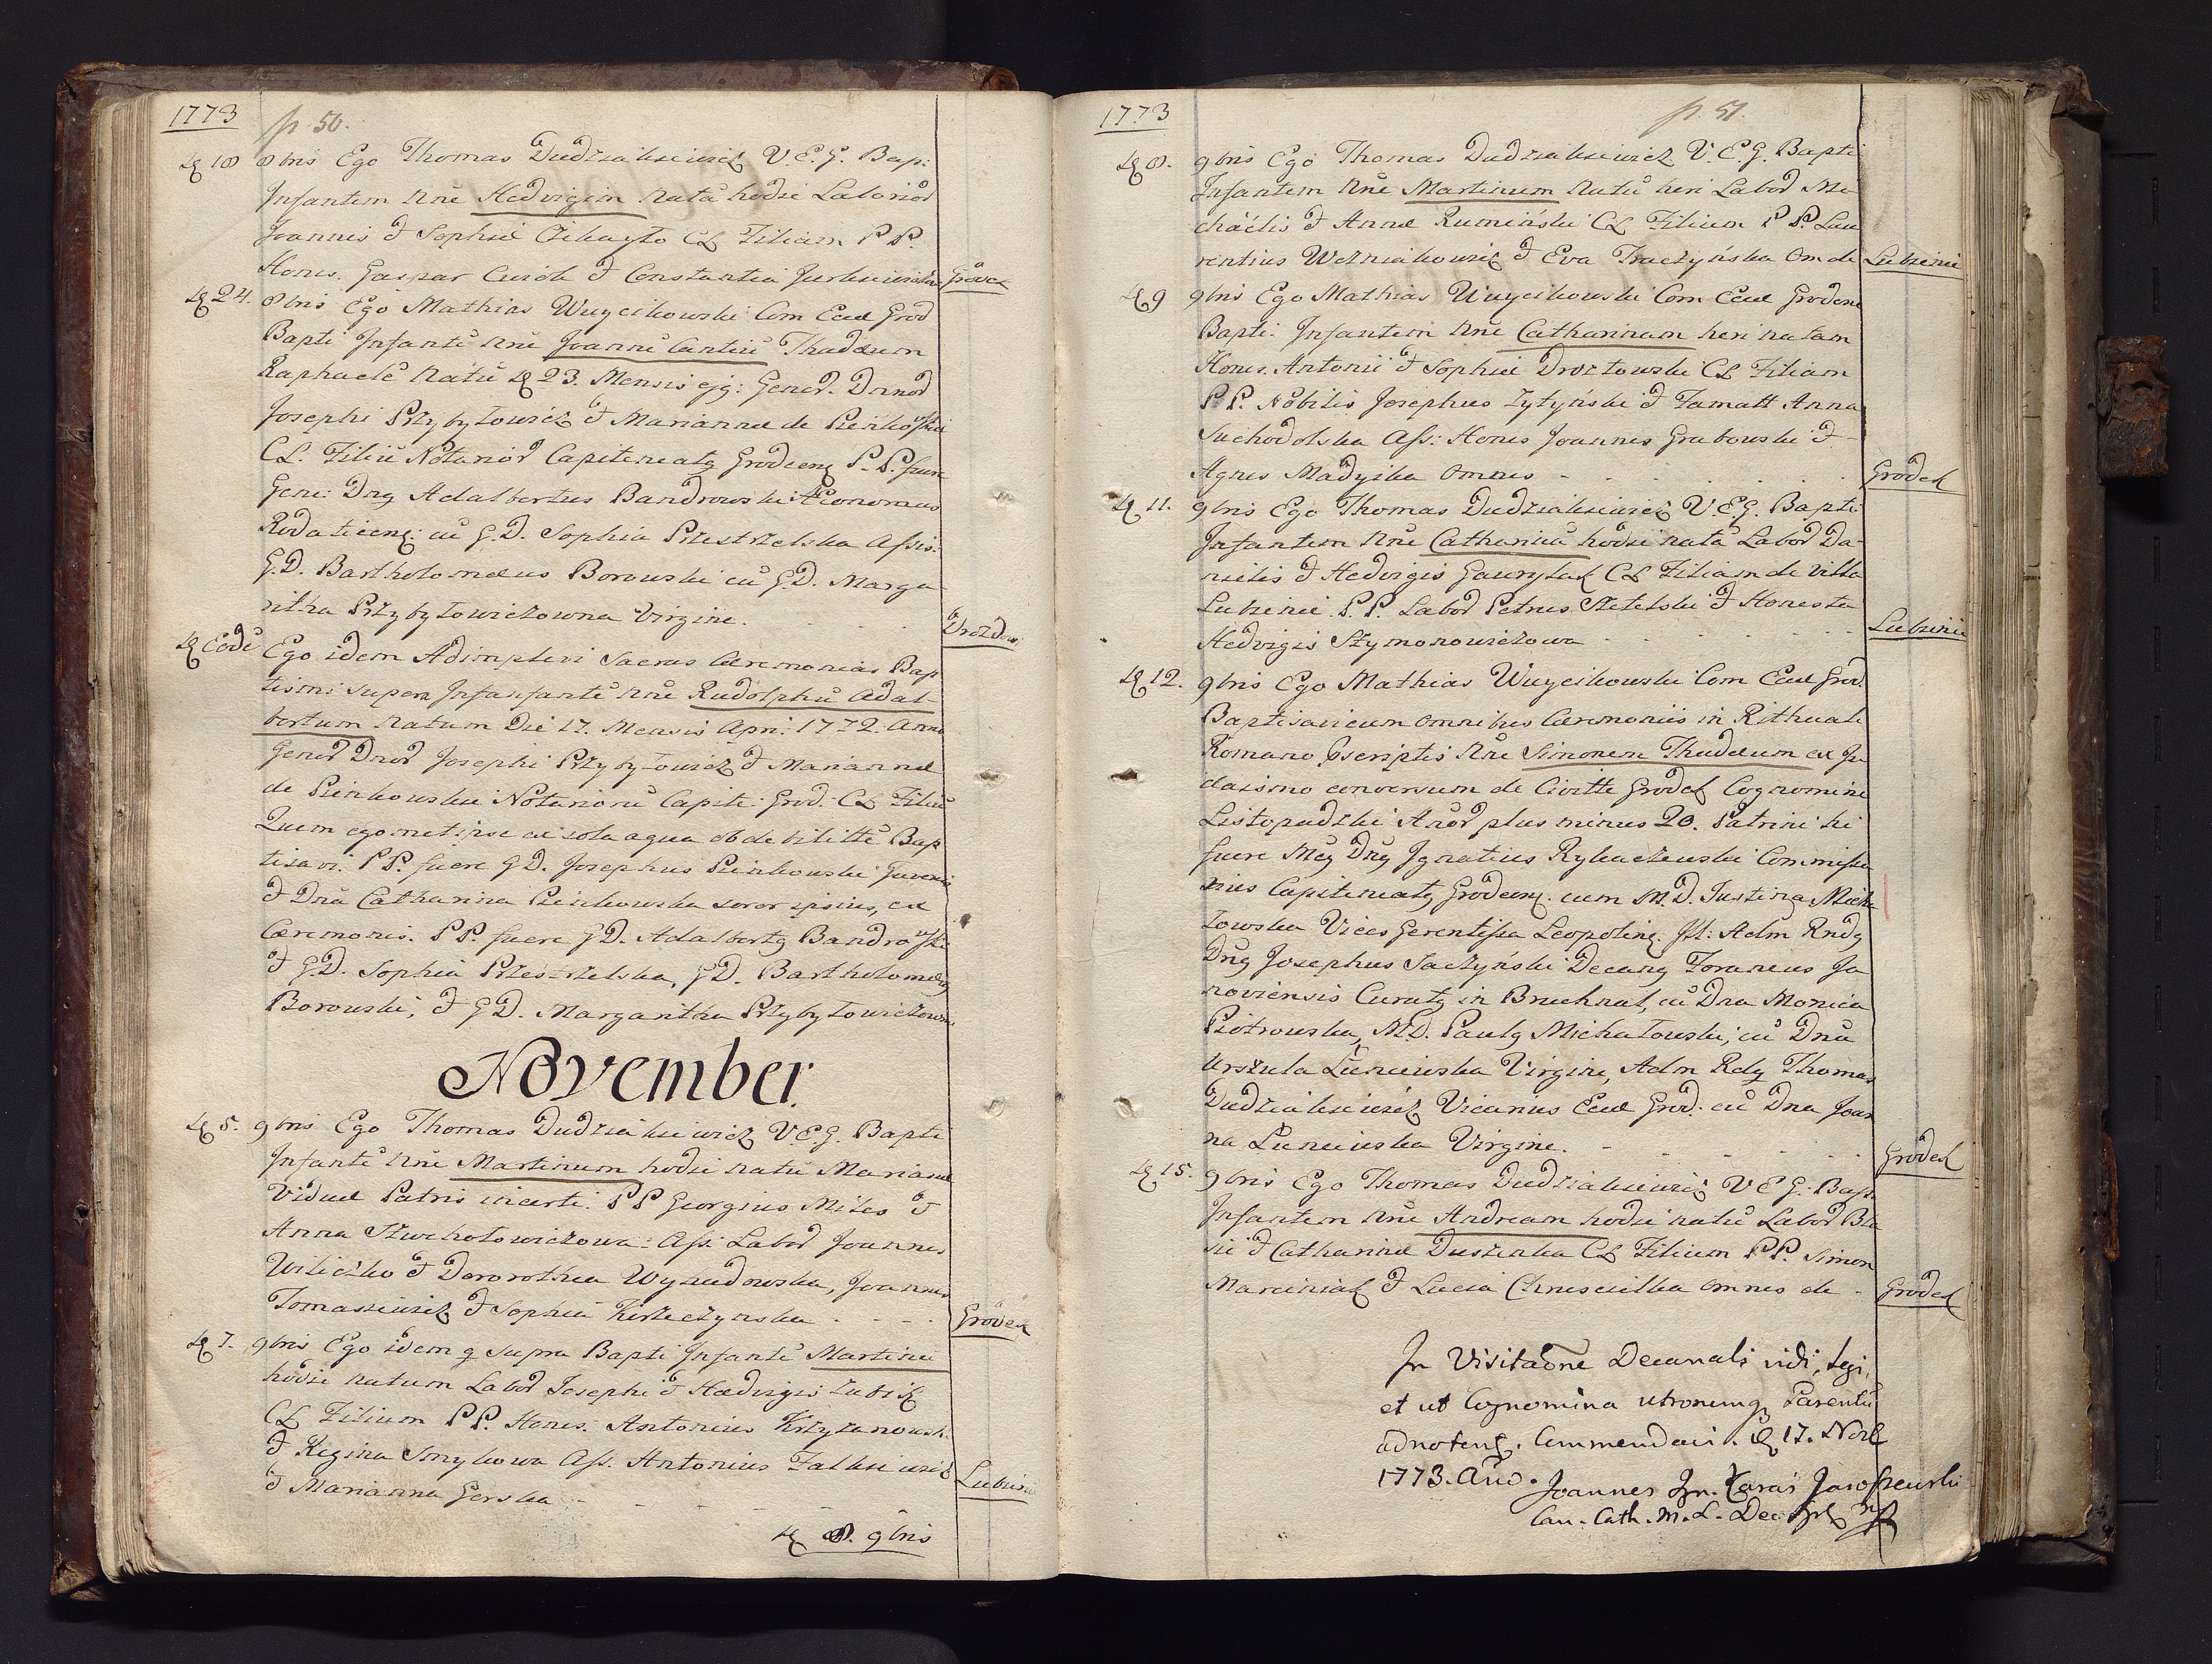 1773
p. 50.
D 18 8bris Ego Thomas Dudziakiewicz V. E. G. Bap:
Infantem Nne Hedvigim Natã hodie Laborios
Joannis & Sophiæ CL Filiam P P.
Hones. Gaspar & Constantia
Grodek
D 24. 8bris Ego Mathias Wuycikowski Com Eccl Grod
Bapti Infantẽ Nne Joannẽ Cantiũ Thadæum
Raphaelẽ Natũ D 23. Mensis ejq: Gener. Dnnor
Josephi Przybyłowicz & Mariannæ de Pieńkowskie
CL. Filiũ Notarior Capiteneatq Grodecenq P. P. fure
Gene: Dnq Adalbertus Bandrowski Æconomus
Rodaticenq: cũ G. D. Sophia Przestrzelska Assis:
G. D. Bartholomæus Borowski cũ G. D. Marga
ritha Przybyłowiczowna Virgine.
Drozdow:
D Eodẽ Ego idem Adimplevi Sacras Cæremonias Bap
tismi supera Infanfantẽ Nne Rudolphũ Adal-
bertum Natum Die 17. Mensis Apri: 1772. Anno
Gener Dnor Josephi Przybyłowicz & Mariannæ
de Pieńkowskie Notariorũ Capite: Grod: CL Filiũ
Quem egometipse ex sola aqua ob debilittẽ Bap
tisavi. P P. fuere G D. Josephus Pieńkowski Juvenis
& Dna Catharina Pieńkowska soror ipsius, ex
Cæremoniis. P P. fuere G D. Adalbertq Bandrowski
& G. D. Sophia Przestrzelska, G D. Bartholomæq
Borowski, & G D. Margaritha Przybyłowiczowna
November.
D 5. 9bris Ego Thomas Dudziakiewicz V. E. G. Bapti
Infantẽ Nne Martinum hodie natũ Mariannæ
Viduæ Patris incerti. P P Georgius Miles &
Anna Assi: Labor Joannes
Wiliczko & Dororothea Wyszudowska, Joannes
Tomasiewicz & Sophia
Grodek
D 7. 9bris Ego idem q supra Bapti Infantẽ Martinũ
hodie natum Labor Josephi & Hædvigis Zubik
CL Filium P P. Hones: Antonius Krzyzanowsk:
& Regina Smykowa Ass. Antonius Falkiewicz
& Marianna Gerska
Lubienie
D 8. 9bris
1773
p. 51.
D 8. 9bris Ego Thomas Dudziakiewicz V. E. G. Bapti
Infantem Nne Martinum Natũ heri Labor Mi-
chaelis & Annæ Rumiński CL Filium P P. Lau
rentius Wozniakowicz & Eva Traczyńska Om de
Lubienie
D 9 9bris Ego Mathias Wuycikowski Com Eccl Grodens
Bapti: Infantem Nne Catharinam heri natam
Hones. Antonii & Sophiæ Drozłowski CL Filiam
P P. Nobilis Josephus Zytyński & Famatt Anna
Suchodolska Ass: Hones Joannes Grabowski &
Agnes Madyska Omnes
Grodek
D 11. 9bris Ego Thomas Dudziakiewicz V. E. G. Bapti:
Infantem Nne Catharinã hodie natã Labor Da-
nielis & Hedvigis Gawrylak CL Filiam de Villa
Lubienie. P. P. Labor Petrus Stetelski & Honesta
Hedvigis Szymonowiczowa
Lubienie
D 12. 9bris Ego Mathias Wuycikowski Com Eccl Grod.
Baptisavi cum omnibus Cæremoniis in Rithuali
Romano pscriptis Nne Simonem Thadæum ex Ju
daismo conversum de Civitte Grodek Cognomine
Listopadzki Anor plus minus 20. Patrini hi
fuere Mcq Dnq Ignatius Rybaczewski Commissa
rius Capiteneatq Grodecenq. cum M. D. Justina Micha
łowska Vices Gerentissa Leopolienq. Ill: Adm Rndq
Dnq Josephus Saczyński Decanq Foraneus Ja
noviensis Curatq in Bruchnal, cũ Dna Monica
Piotrowska, M. D. Paulq Michałowski, cũ Dna
Urszula Luniewska Virgine, Adm Rdq Thomas
Dudziakiewicz Vicarius Eccl Grod: cũ Dna Joan
na Luniewska Virgine.
Grodek
D 15. 9bris Ego Thomas Dudziakiewicz V E G: Bapt.
Infantem Nne Andream hodie natũ Labor Bla
sii & Catharinæ Duszenka CL Filium P P. Simon
Marciniak & Lucia omnes de
Grodek
In Visitaõne Decanali vidi, legi,
et ut Cognomina utronumq Parentũ
adnotenq. Commendavi. D 17. Nov
1773. Ano. Joannes
Can. Cath. M. L. Dec.